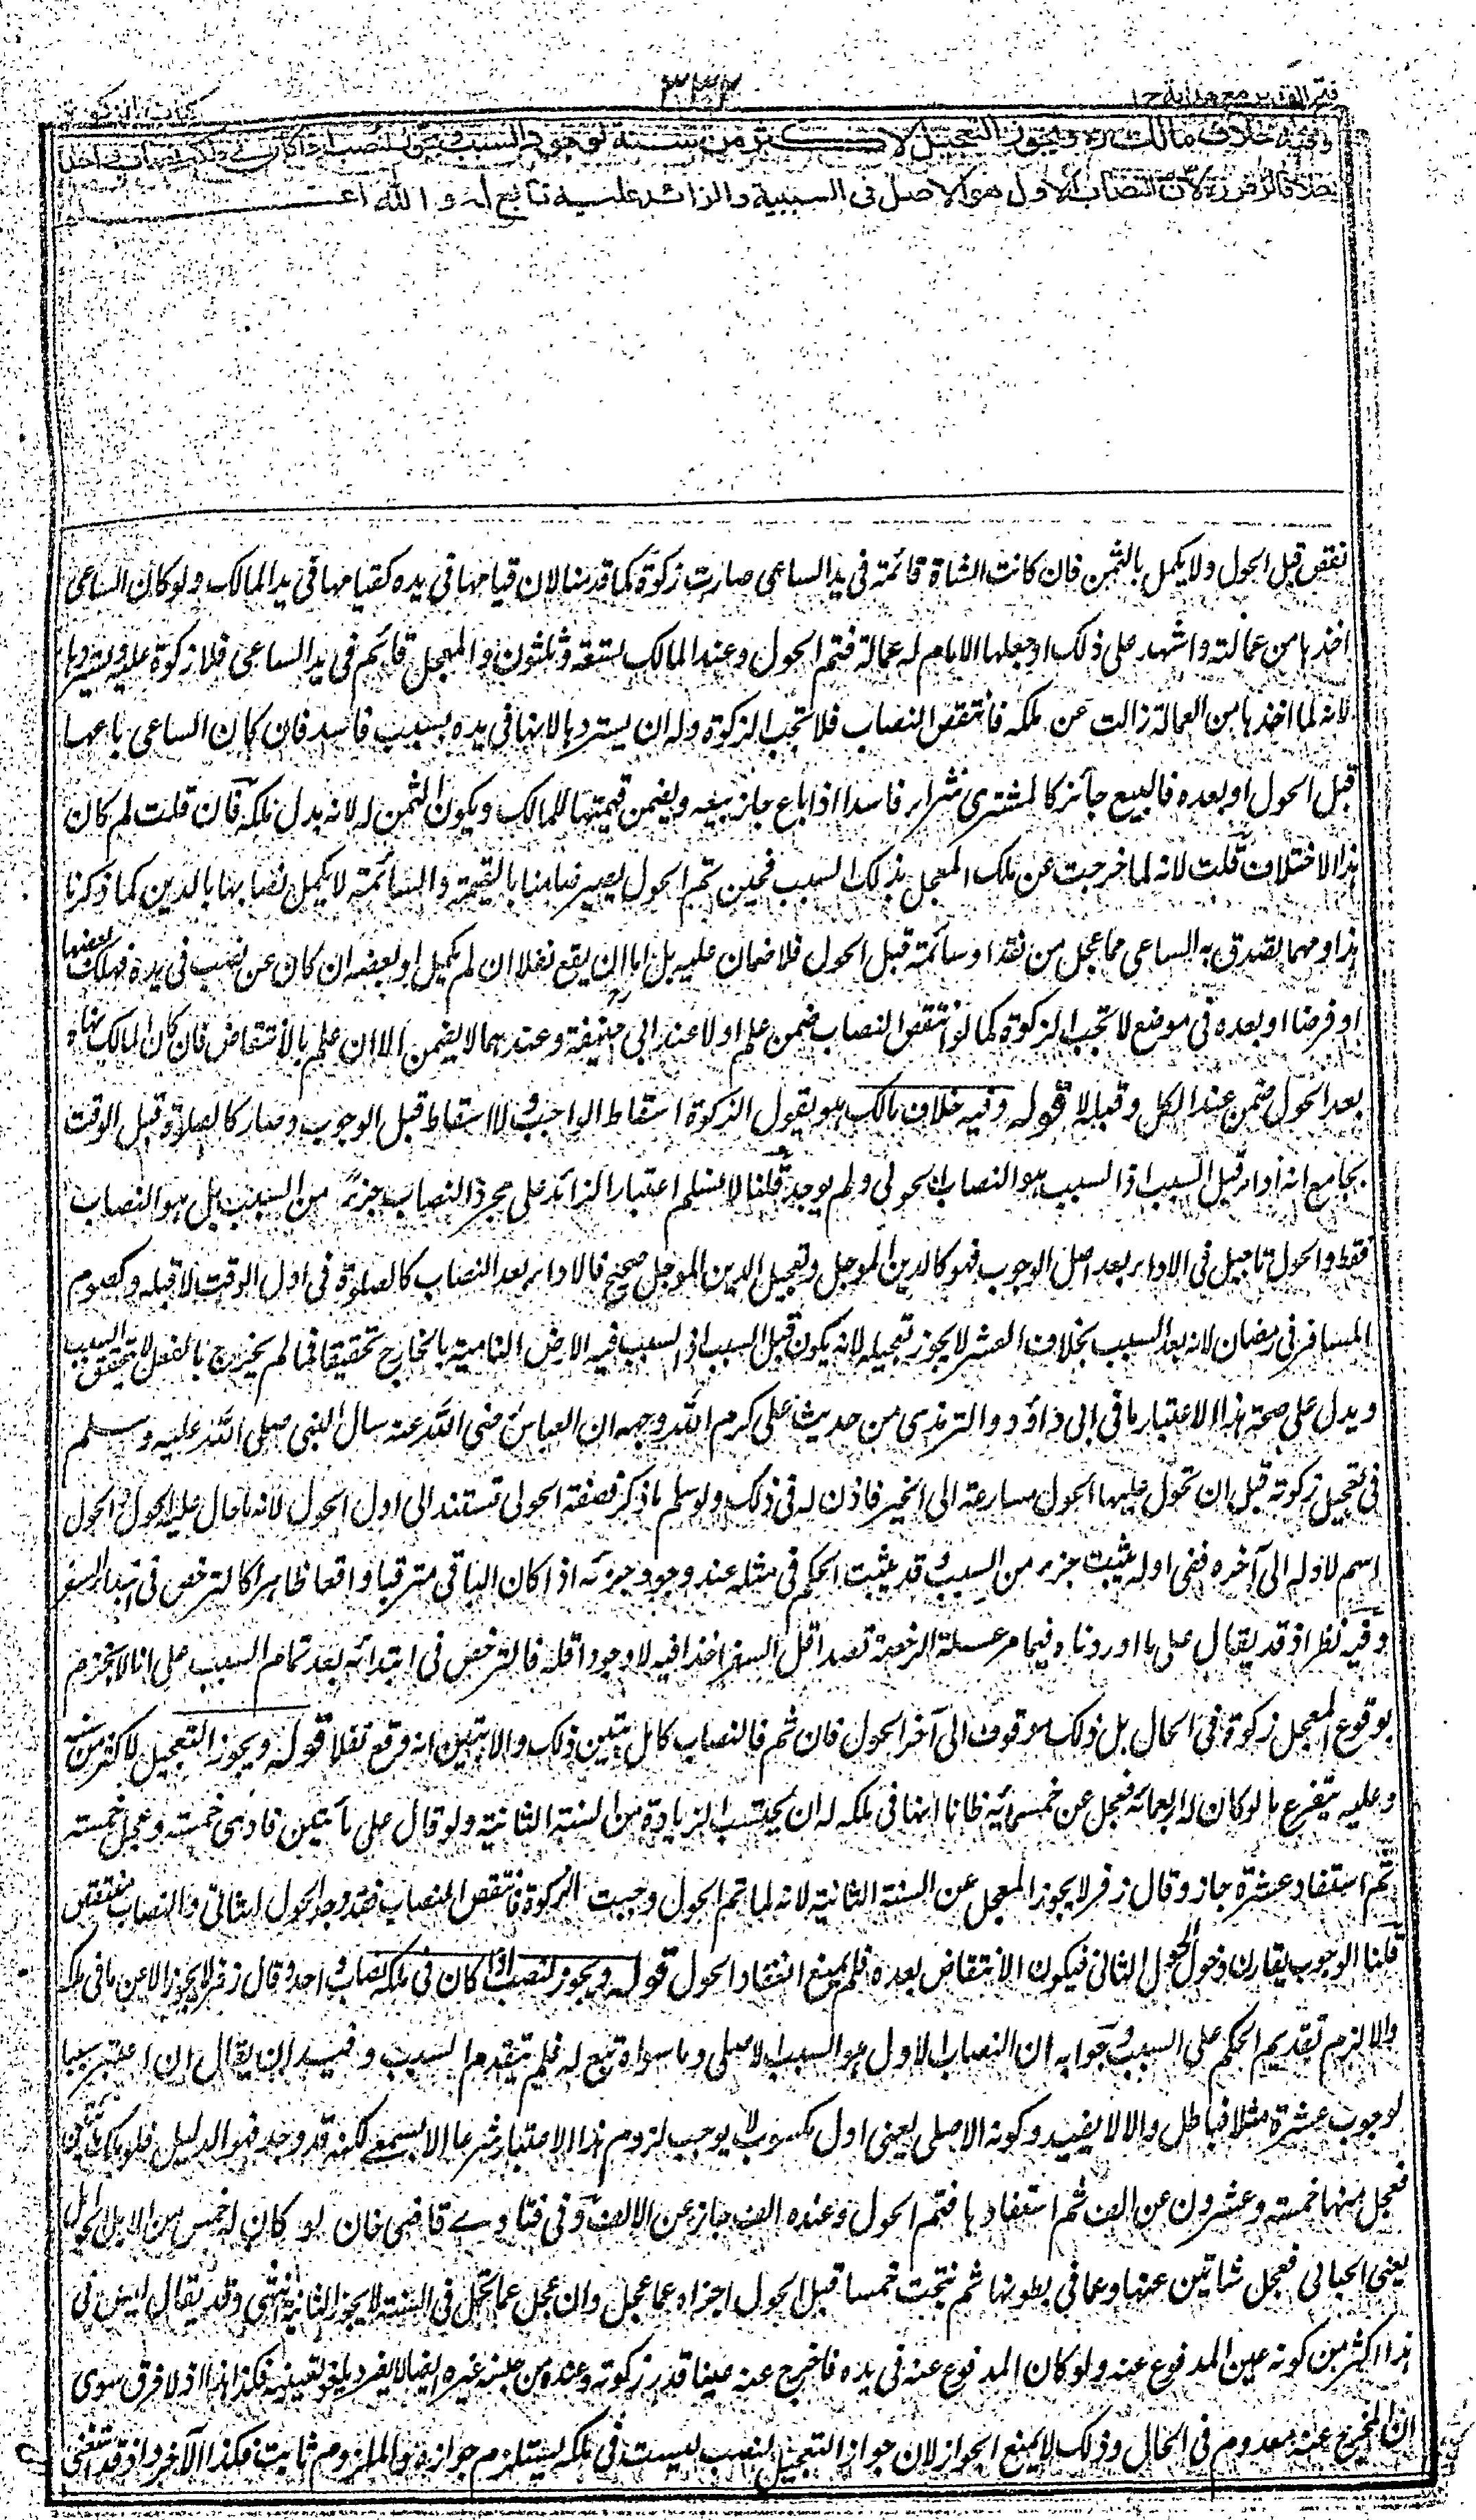 فتح القدير مع هداية ج ١
٣٣٤
كتاب الزكوة
وفيه خلاف مالك ره ويجوز التعجيل لاكثر من سنة لوجود السبب ويجوز لنصب اذا كان في ملكه نصاب واحد
خلافا لزفر ره لان النصاب الاول هو الاصل في السببية والزائد عليه تابع له والله اعلم
نقص قبل الحول ولا يكمل بالثمن فان كانت الشاة قائمة في يد الساعي صارت زكوة كما قدمنا لان قيامها في يده كقيامها في يد المالك ولو كان الساعي
اخذها من عمالته واشهد على ذلك او جعلها الامام له عمالة فتم الحول وعند المالك تسعة وثلثون والمعجل قائم في يد الساعي فلا زكوة عليه ويستردها
لانه لما اخذها من العمالة زالت عن ملكه فانتقص النصاب فلا تجب الزكوة وله ان يستردها لانها في يده بسبب فاسد فان كان الساعي باعها
قبل الحول او بعده فالبيع جائز كالمشتري شراء فاسدا اذا باع جاز بيعه ويضمن قيمتها للمالك ويكون الثمن له لانه بدل ملكه فان قلت لم كان
هذا الاختلاف قلت لانه لما خرجت عن ملك المعجل بذلك السبب فحين تم الحول يصير ضامنا بالقيمة والسائمة لا يكمل نصابها بالدين كما ذكرنا
هذا ومهما تصدق به الساعي مما عجل من نقد او سائمة قبل الحول فلا ضمان عليه بل اما ان يقع نفلا ان لم يكمل او بعضه ان كان عن نصب في يده فهلك بعضها
او فرضا او بعده في موضع لا تجب الزكوة كما لو انتقص النصاب ضمن علم او لا عند ابي حنيفة ره وعندهما لا يضمن الا ان علم بالانتقاض فان كان المالك نهاه
بعد الحول ضمن عند الكل وقبله لا قوله وفيه خلاف مالك هو يقول الزكوة اسقاط الواجب ولا اسقاط قبل الوجوب وصار كالصلاة قبل الوقت
بجامع انه اداء قبل السبب اذ السبب هو النصاب الحولي ولم يوجد قلنا لا نسلم اعتبار الزائد على مجرد النصاب جزءا من السبب بل هو النصاب
فقط والحول تاجيل في الاداء بعد اصل الوجوب فهو كالدين المؤجل وتعجيل الدين المؤجل صحيح فالاداء بعد النصاب كالصلوة في اول الوقت لا قبله وكصوم
المسافر في رمضان لانه بعد السبب بخلاف العشر لا يجوز تعجيله لانه يكون قبل السبب اذ السبب فيه الارض النامية بالخارج تحقيقا فما لم يخرج بالفعل لا يتحقق السبب
ويدل على صحة هذا الاعتبار ما في ابي داؤد والترمذي من حديث علي كرم الله وجهه ان العباس رضى الله عنه سال النبي صلى الله عليه وسلم
في تعجيل زكوته قبل ان تحول عليها الحول مسارعة الى الخير فاذن له في ذلك ولو سلم ما ذكر فصفة الحولي تستند الى اول الحول لانه ما حال عليه الحول والحول
اسم لاوله الى آخره ففي اوله يثبت جزء من السبب وقد يثبت الحكم في مثله عند وجود جزئه اذا كان الباقي مترقبا واقعا ظاهرا كالترخص في ابتداء السفر
وفيه نظر اذ قد يقال على ما اوردناه فيما مر علة الرخصة قصد اقل السفر اخذا فيه لا وجود اقله فالترخص في ابتدائه بعد تمام السبب على انا لا نجزم
بوقوع المعجل زكوة في الحال بل ذلك موقوف الى آخر الحول فان تم فالنصاب كامل يتبين ذلك والا يتبين انه وقع نفلا قوله ويجوز التعجيل لاكثر من سنة
وعليه يتفرع ما لو كان له اربعمائة فعجل عن خمسمائة ظانا انها في ملكه له ان يحتسب الزيادة من السنة الثانية ولو قال على مأتين فادى خمسة وعجل خمسة
ثم استفاد عشرة جاز وقال زفر لا يجوز المعجل عن السنة الثانية لانه لما تم الحول وجبت الزكوة فانتقص النصاب فقد وجد الحول الثاني والنصاب منتقص
قلنا الوجوب يقارن دخول الحول الثاني فيكون الانتقاض بعده فلم يمنع انعقاد الحول قوله ويجوز لنصب اذا كان في ملكه نصاب واحد وقال زفر لا يجوز الا عن ما في ملكه
والا لزم تقديم الحكم على السبب وجوابه ان النصاب الاول هو السبب الاصلي وما سواه تبع له فلم يتقدم السبب وفيه ان يقال ان اعتبر سببا
لوجوب عشرة مثلا فباطل والا لا يفيد وكونه الاصلي يعني اول مكسوب لا يوجب لزوم هذا الاعتبار شرعا الا بسمع لكنه قد وجد فهو الدليل فلو ملك مائتين
فعجل منها خمسة وعشرون عن الف ثم استفادها فتم الحول وعنده الف جاز عن الالف وفي فتاوى قاضي خان لو كان له خمس من الابل الحوامل
يعني الحبالى فعجل شاتين عنها وعما في بطونها ثم نتجت خمسا قبل الحول اجزاه عما عجل وان عجل عما تحمل في السنة الثانية لا يجوز انتهى وقد يقال ليس في
هذا اكثر من كونه عين المدفوع عنه ولو كان المدفوع عنه في يده فاخرج عنه عينا قدر زكوته وعنده من جنسه غيره ايضا لا يضر ويلغو تعيينه فكذا هذا اذ لا فرق سوى
ان المخرج عنه معدوم في الحال وذلك لا يمنع الجواز لان جواز التعجيل لنصب ليست في ملكه يستلزم جوازه والملزوم ثابت فكذا الآخر